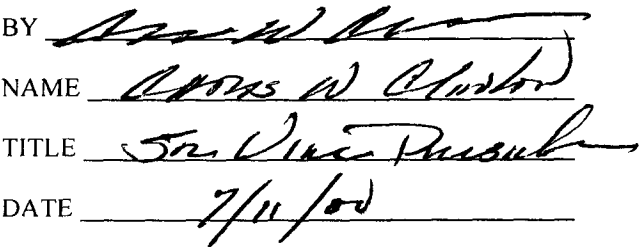 BY
NAME W Clinton
TITLE Sr. Vice President
DATE 7/11/00